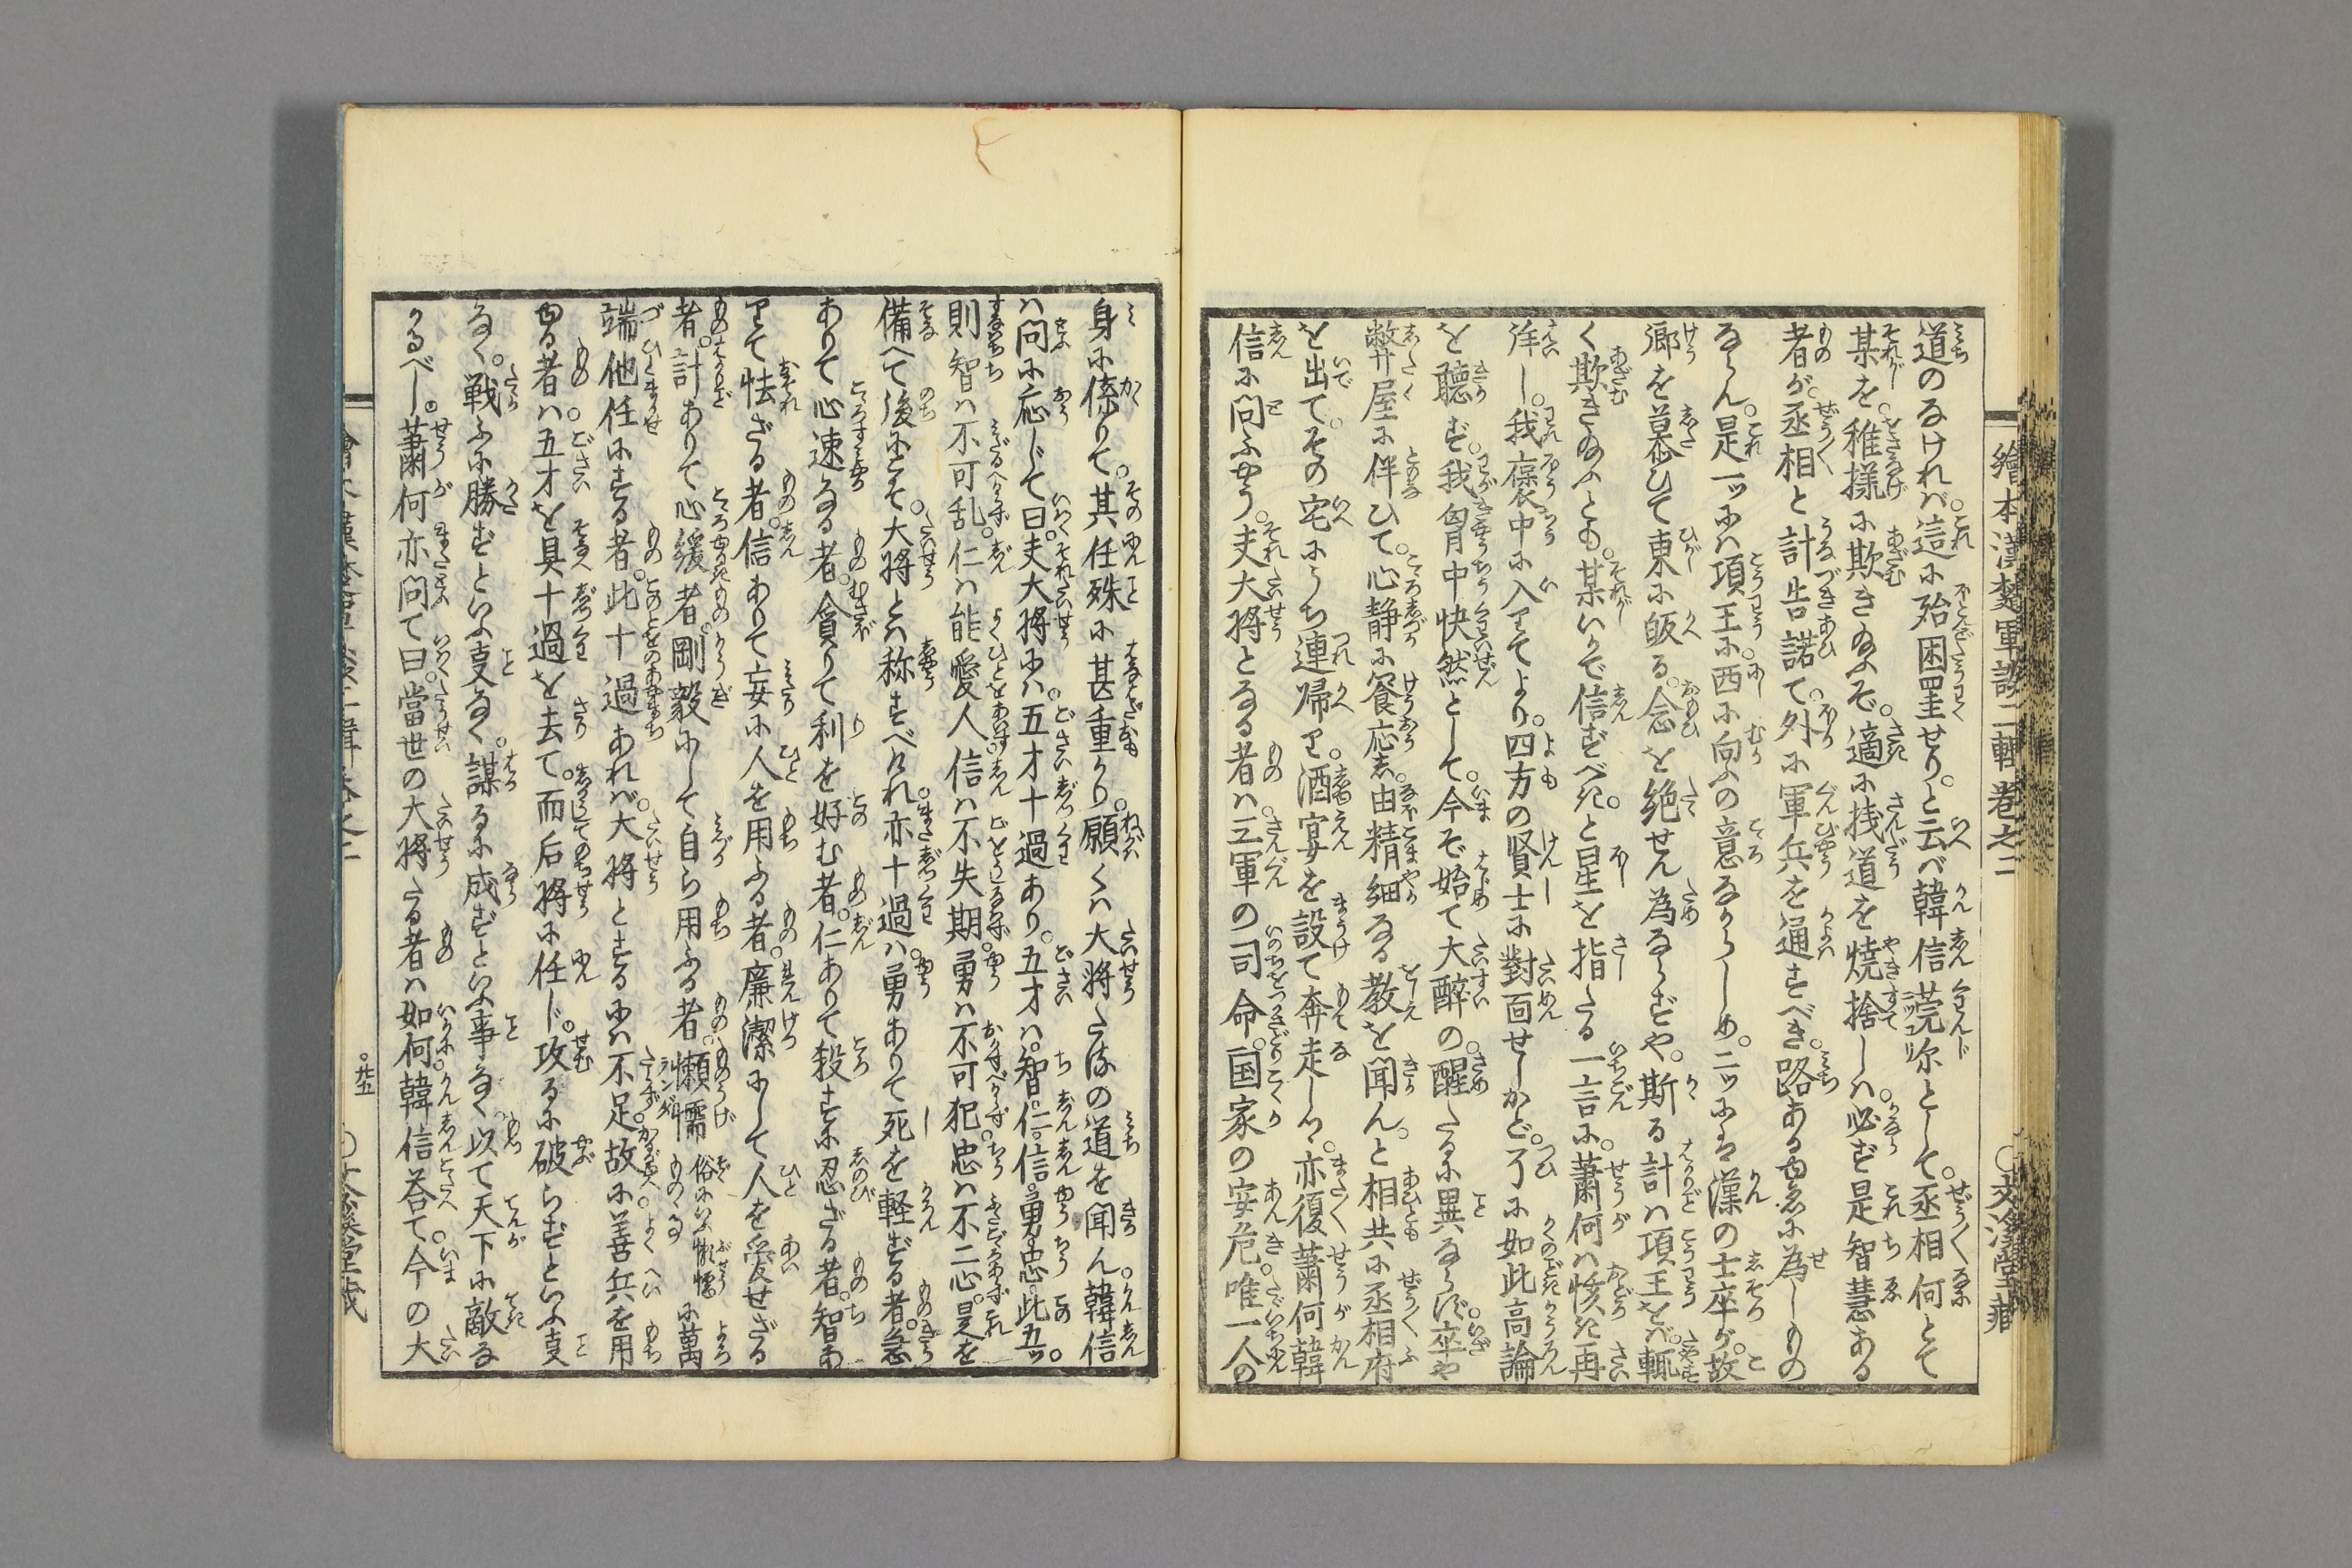 繪本漢楚軍談二輯卷之二 ○文溪堂藏
道のなけれバ。這に殆困窐せり。と云べ韓信莞尓として。丞相何とて
某を。稚様に欺き給ふぞ。適に棧道を焼捨しハ。必ず是智慧ある
者が。丞相と計告諾て。外に軍兵を通すべき。路ある由急に為しもの
ならん。是一ッにハ項王に。西に向ふの意なからしめ。二ッにハ漢の士卒が。故
郷を慕ひて東に皈る。念を絶せん為ならずや。斯る計ハ項王をバ。輒
く欺き給ふとも。某いかで信ずべき。と星を指たる一言に。蕭何ハ駭き再
拜し。我褒中に入りてより。四方の賢士に對面せしかど。了に如此高論
を聽ず。我胷中快然として。今ぞ始て大醉の。醒たるに異ならず。卒や
弊屋に伴ひて。心静に飨応し。由精細なる教を聞ん。と相共に丞相府
を出て。その宅にうち連帰り。酒宴を設て奔走しつ。亦復蕭何韓
信に問ふやう。夫大将となる者ハ。三軍の司命。国家の安危。唯一人の
身に係りて。其任殊に甚重かり。願くハ大将たるの道を聞ん。韓信
ハ問に応じて曰。夫大将にハ。五才十過あり。五才ハ。智。仁。信。勇。忠。此五ッ。
則智ハ不可乱。仁ハ能愛人。信ハ不失期。勇ハ不可犯。忠ハ不二心。是を
備へて後にこそ。大将とハ称すべけれ。亦十過ハ。勇ありて死を軽ずる者。急
ありて心速なる者。貪りて利を好む者。仁ありて殺すに忍ざる者。智あ
りて怯ざる者。信ありて妄に人を用ふる者。廉潔にして人を愛せざる
者。計ありて心緩者。剛毅にして自ら用ふる者。懶懦俗にいふ懶惰ものにて萬
端他任にする者。此十過あれバ。大将とするにハ不足。故に善兵を用
由る者ハ。五才を具十過を去て。而后将に任じ。攻るに破らずといふ㕝
なく。戦ふに勝ずといふ㕝なく。謀るに成ずといふ事なく。以て天下に敵な
かるべし。蕭何亦問て曰。當世の大将たる者ハ如何。韓信荅て。今の大
○廿五